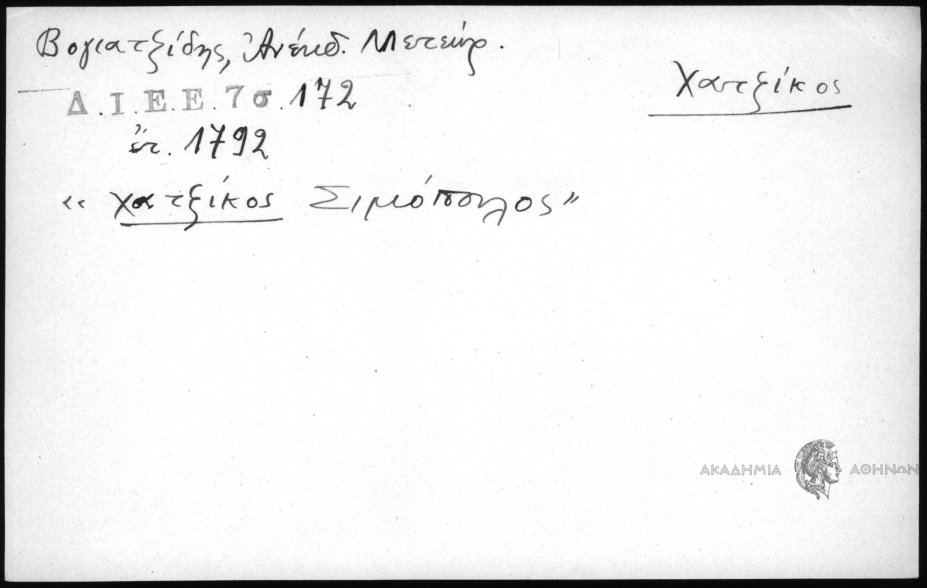 Βογιατζίδης, Ἀνέκδ. Μετεώρ.
Χατζίκος
Δ.Ι.Ε.Ε. 7 σ. 172
ἔτ. 1792
« χατζίκος Σιμόπουλος »
ΑΚΑΔΗΜΙΑ ΑΘΗΝΩΝ